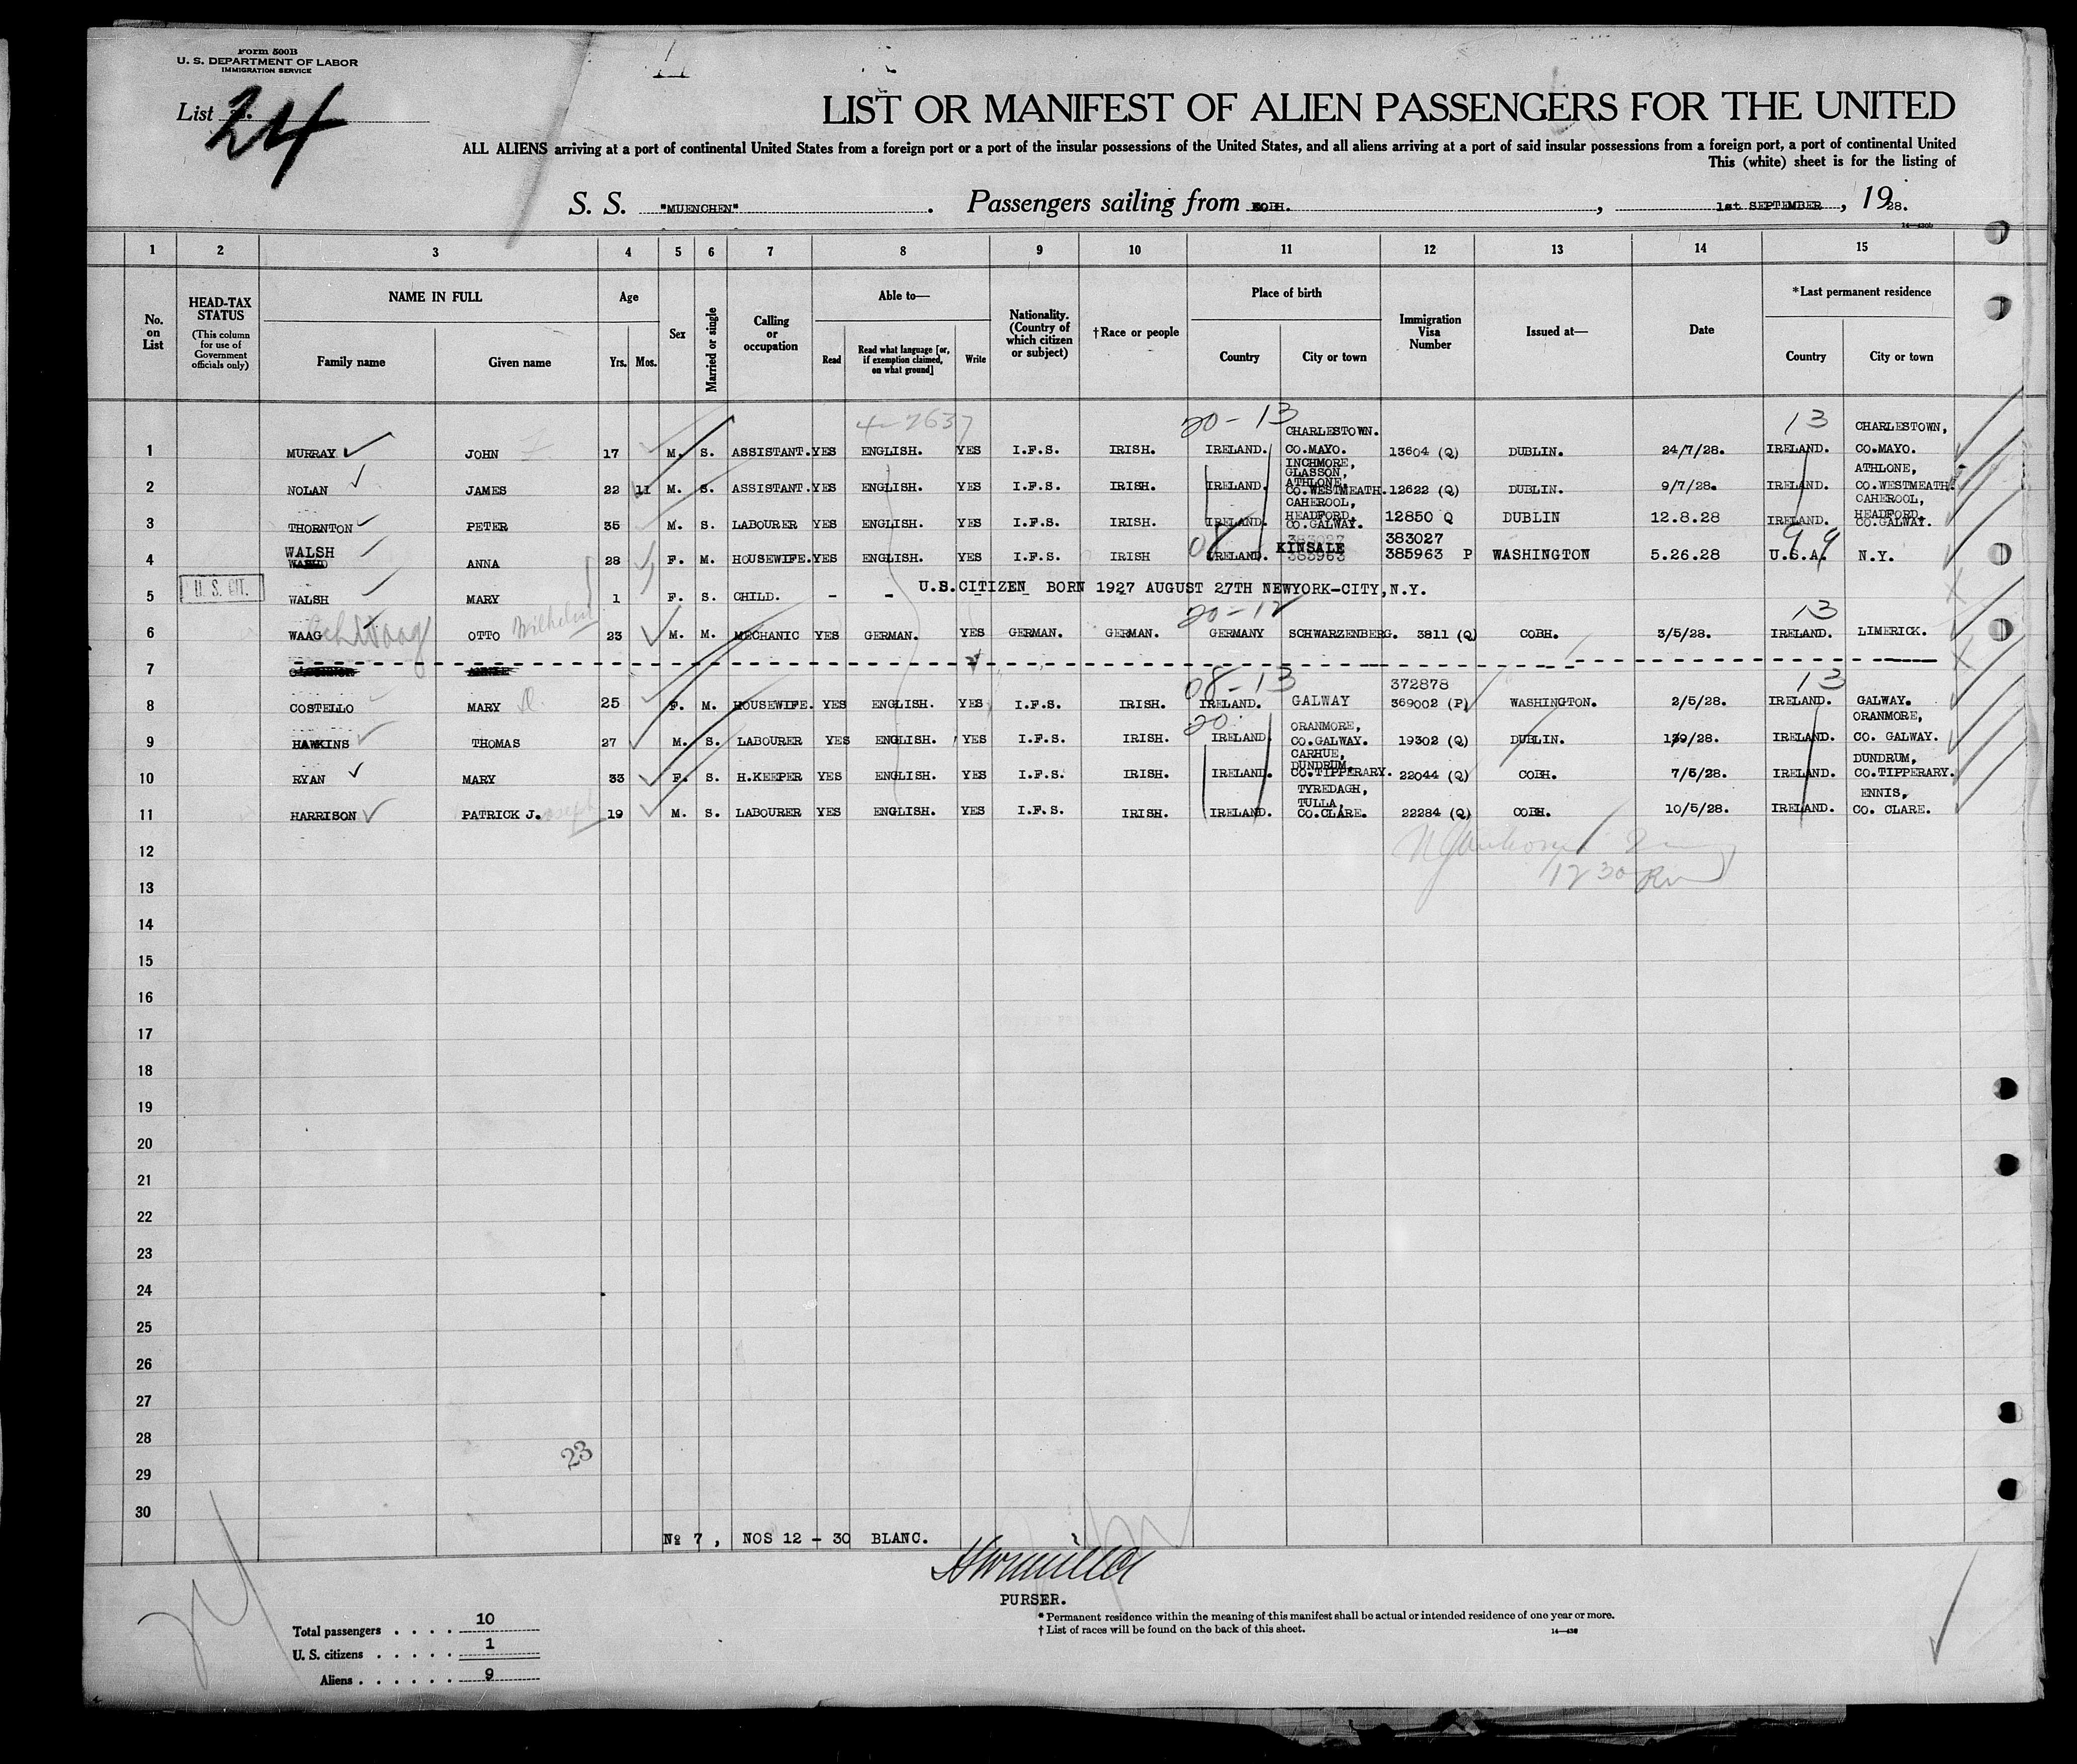 Form 500B
U. S. DEPARTMENT OF LABOR
IMMIGRATION SERVICE
List 24
LIST OR MANIFEST OF ALIEN PASSENGERS FOR THE UNITED
ALL ALIENS arriving at a port of continental United States from a foreign port or a port of the insular possessions of the United States, and all aliens arriving at a port of said insular possessions from a foreign port, a port of continental United
This (white) sheet is for the listing of
S. S. "MUENCHEN". Passengers sailing from COBH., 1st SEPTEMBER, 1928.
14—430b
1 2 3 4 5 6 7 8 9 10 11 12 13 14 15
No. on List
HEAD-TAX STATUS
(This column for use of Government officials only)
NAME IN FULL
Family name Given name
Age
Yrs. Mos.
Sex
Married or single
Calling or occupation
Able to—
Read Read what language [or, if exemption claimed, on what ground] Write
Nationality. (Country of which citizen or subject)
†Race or people
Place of birth
Country City or town
Immigration Visa Number
Issued at—
Date
*Last permanent residence
Country City or town
4-2637 20-13 13
1 MURRAY JOHN 17 M. S. ASSISTANT. YES ENGLISH. YES I.F.S. IRISH. IRELAND. CHARLESTOWN. CO.MAYO. 13604 (Q) DUBLIN. 24/7/28. IRELAND. CHARLESTOWN, CO.MAYO.
2 NOLAN JAMES 22 11 M. S. ASSISTANT. YES ENGLISH. YES I.F.S. IRISH. IRELAND. INCHMORE, GLASSON, ATHLONE, CO.WESTMEATH. 12622 (Q) DUBLIN. 9/7/28. IRELAND. ATHLONE, CO.WESTMEATH.
3 THORNTON PETER 35 M. S. LABOURER YES ENGLISH. YES I.F.S. IRISH. IRELAND. CAHEROOL, HEADFORD, CO.GALWAY. 12850 Q DUBLIN 12.8.28 IRELAND. CAHEROOL, HEADFORD, CO.GALWAY.
08 383027 99
4 WALSH ANNA 28 F. M. HOUSEWIFE. YES ENGLISH. YES I.F.S. IRISH IRELAND. KINSALE 383027 385963 385963 P WASHINGTON 5.26.28 U.S.A. N.Y.
U. S. CIT.
5 WALSH MARY 1 F. S. CHILD. - - U.S.CITIZEN BORN 1927 AUGUST 27TH NEWYORK-CITY, N.Y.
20-12 13
6 WAAG Schwaag OTTO Wilhelm 23 M. M. MECHANIC YES GERMAN. YES GERMAN. GERMAN. GERMANY SCHWARZENBERG. 3811 (Q) COBH. 3/5/28. IRELAND. LIMERICK.
7
08-13 372878 13
8 COSTELLO MARY D. 25 F. M. HOUSEWIFE. YES ENGLISH. YES I.F.S. IRISH. IRELAND. GALWAY 369002 (P) WASHINGTON. 2/5/28. IRELAND. GALWAY.
20
9 HAWKINS THOMAS 27 M. S. LABOURER YES ENGLISH. YES I.F.S. IRISH. IRELAND. ORANMORE, CO.GALWAY. 19302 (Q) DUBLIN. IRELAND. ORANMORE, CO. GALWAY.
10 RYAN MARY 33 F. S. H.KEEPER YES ENGLISH. YES I.F.S. IRISH. IRELAND. CARHUE, DUNDRUM, CO.TIPPERARY. 22044 (Q) COBH. 7/5/28. IRELAND. DUNDRUM, CO.TIPPERARY.
11 HARRISON PATRICK J. Joseph 19 M. S. LABOURER YES ENGLISH. YES I.F.S. IRISH. IRELAND. TYREDAGH, TULLA, CO.CLARE. 22284 (Q) COBH. 10/5/28. IRELAND. ENNIS, CO. CLARE.
12
13
14
15
16
17
18
19
20
21
22
23
24
25
26
27
28
23
29
30
№ 7, NOS 12 - 30 BLANC.
PURSER.
* Permanent residence within the meaning of this manifest shall be actual or intended residence of one year or more.
† List of races will be found on the back of this sheet.
14—430
Total passengers . . . . 10
U. S. citizens . . . . . 1
Aliens . . . . . . 9